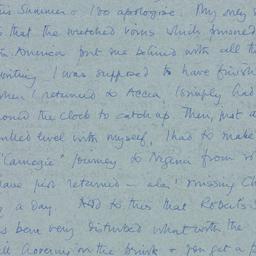 this Summer & I do apologise. My only
is that the wretched vons which
America put me behind with all th
writing I was supposed to have finish
when I returned to Accra, I simply had
round the clock to catch up. Then, just a
level with myself, I had to make
"Carnegie" journey to Nigeria from w
have just returned — alas! missing Ch
by a day. Add to this that Robert's
has been very disturbed what with the
on the brink & you get a p